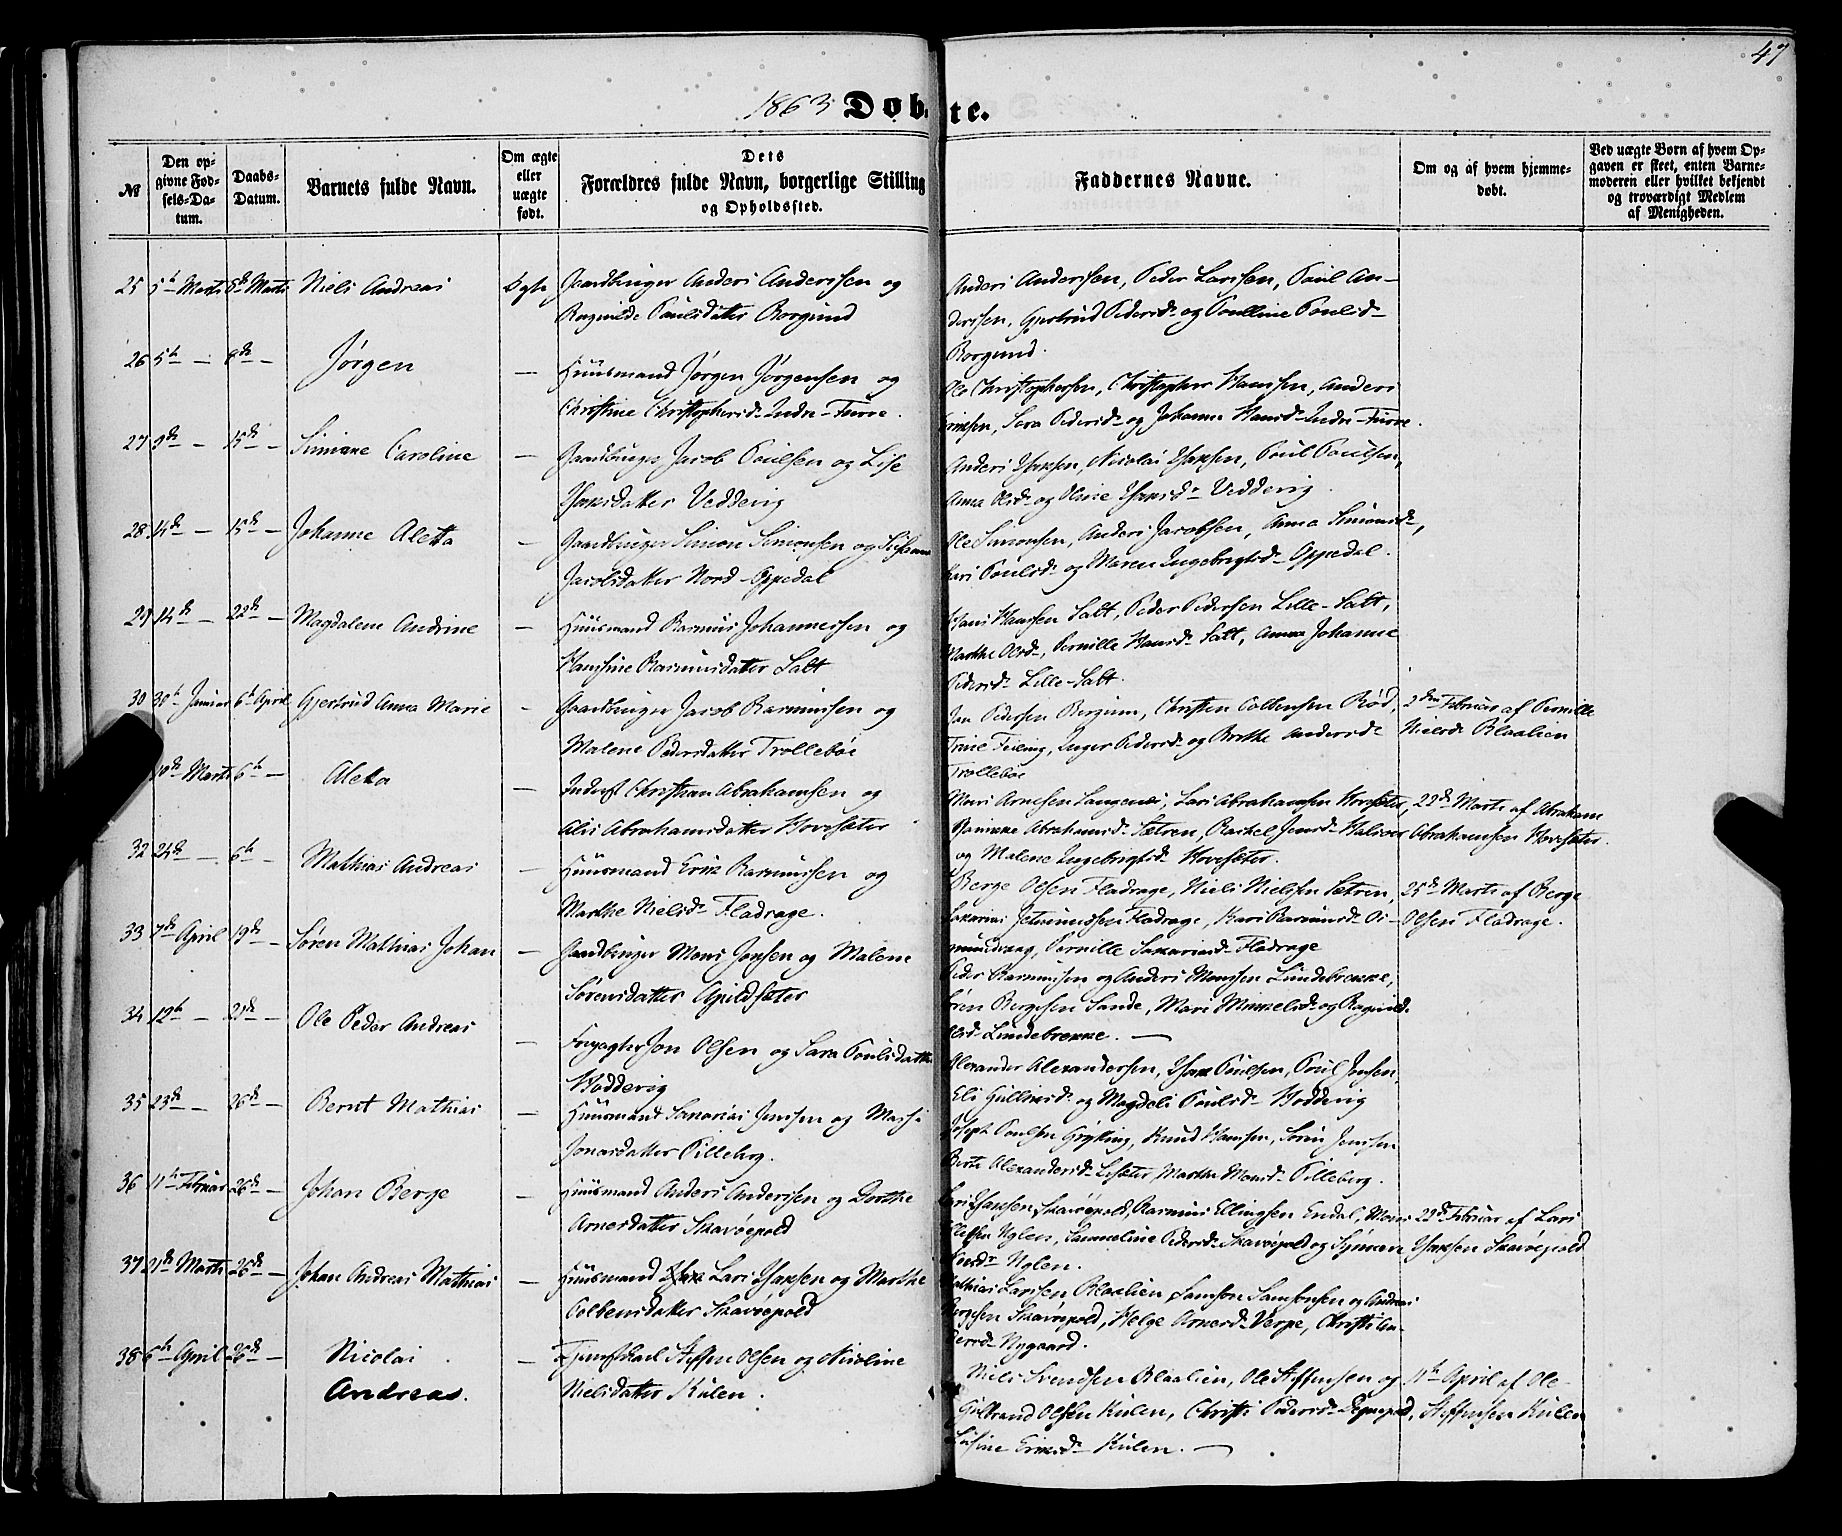 47
1863 Døbte.
№
Den opgivne Fødsels-Datum.
Daabs-Datum.
Barnets fulde Navn.
Om ægte eller uægte født.
Dets Forældres fulde Navn, borgerlige Stilling og Opholdssted.
Faddernes Navne.
Om og af hvem hjemmedøbt.
Ved uægte Børn af hvem Opgaven er skeet, enten Barnemoderen eller hvilket bekjendt og troværdigt Medlem af Menigheden.
25 5te Marts 8de Marts Niels Andreas Ægte Gaardbruger Anders Andersen og
Ragnilde Poulsdatter Borgund
Anders Andersen, Peder Larsen, Poul An-
dersen, Gjertrud Pedersd. og Poulline Poulsd.
Borgund.
26 5te — 8de — Jørgen — Huusmand Jørgen Jørgensen og
Christine Christophersd. Indre-Furre.
Ole Christophersen, Christopher Hansen, Anders
Sara Pedersd. og Johanne Hansd. Indre-Furre.
27 9de — 15de — Simine Caroline — Gaardbruger Jacob Poulsen og Lise
Isaksdatter Vedderig
Anders Isaksen, Nicolai Isaksen, Poul Poulsen,
Anna Olsd. og Oline Isaksd. Vedderig.
28 14de — 15de — Johanne Aletta — Gaardbruger Simon Simonsen og
Jacobsdatter Nord-Oppedal
Ole Simonsen, Anders Jacobsen, Anna Simonsd.,
Kari Poulsd. og Maren Ingebrigtsd. Oppedal.
29 14de — 22de — Magdalene Andrine — Huusmand Rasmus Johannessen og
Hansine Rasmusdatter Salt
Hans Hansen Salt, Peder Pedersen Lille-Salt,
Marthe Olsd., Pernille Hansd. Salt, Anna Johanne
Pedersd. Lille-Salt.
30 30te Januar 6te April Gjertrud Anna Marie — Gaardbruger Jacob Rasmussen og
Malene Pedersdatter Trollebøe
Jan Pedersen Bergum, Christen Colbensen Rød,
Trine Feiling, Inger Pedersd. og Berthe Andersd.
Trollebøe
2den Februar af Pernille
Nielsd. Blaalien
10de Marts 6te — Aletta — Inderst Christian Abrahamsen og
Alis Abrahamsdatter Hovesæter
Mons Arnesen Langenæs, Lars Abrahamsen Hovesæter,
Abrahamsd. Sætren, Rachel Jensd.
og Malene Ingebrigtsd. Hovesæter.
22de Marts af Abraham
Abrahamsen Hovesæter.
32 24de — 6te Mathias Andreas — Huusmand Erik Rasmussen og
Marthe Nielsd. Fladrage.
Berge Olsen Fladrage, Niels Nielsen Sætren,
Sakarias Fladrage, Kari Rasmusd. Os-
mundvaag, Pernille Sakariasd. Fladrage
25de Marts af Berge
Olsen Fladrage.
33 7de April 19de — Søren Mathias Johan — Gaardbruger Mons Jonsen og Malene
Sørensdatter Apildsæter
Peder Rasmussen og Anders Monssen Lundebrekke,
Søren Bergesen Sande, Mari Mikkelsd. og Ragnild
Olsd. Lundebrekke. —
34 12te — 25de — Ole Peder Andreas — Jon Olsen og Sara Poulsdatter
Hodderig
Alexander Alexandersen, Isak Poulsen, Poul Jonsen,
Eli Gullaksd. og Magdeli Poulsd. Hodderig
35 23de — 26de — Bernt Mathias — Huusmand Sakarias Jenssen og
Jonasdatter Pilleberg.
Joseph Poulsen Grytting, Knud Hansen, Søren Jenssen
Alexandersd. Lisæter, Marthe Monsd. Pilleberg.
36 11te Februar 26de — Johan Berge — Huusmand Anders Andersen og Dorthe
Arnesdatter Skavøepold
Lars Isaksen Skavøepold, Rasmus Ellingsen Endal, Mons
Nylen, Sammeline Pedersd. Skavøepold og
Nylen.
22de Februar af Lars
Isaksen Skavøepold
37 21de Marts 26de — Johan Andreas Mathias — Huusmand Lars Isaksen og Marthe
Colbensdatter Skavøepold
Mathias Larssen Blaalien, Samson Samsonsen og Andreas
Bergesen Skavøepold, Helge Arnesd. Verpe, Christi An-
dersd. Nygaard.
38 6te April 26de — Nicolai Andreas. — Tjenestkarl Steffen Olsen og Nicoline
Nielsdatter Kulen.
Niels Svendsen Blaalien, Ole Steffensen og
Gulbrand Olsen Kulen, Christi Pedersd.
Eriksd. Kulen. —
11te April af Ole
Steffensen Kulen